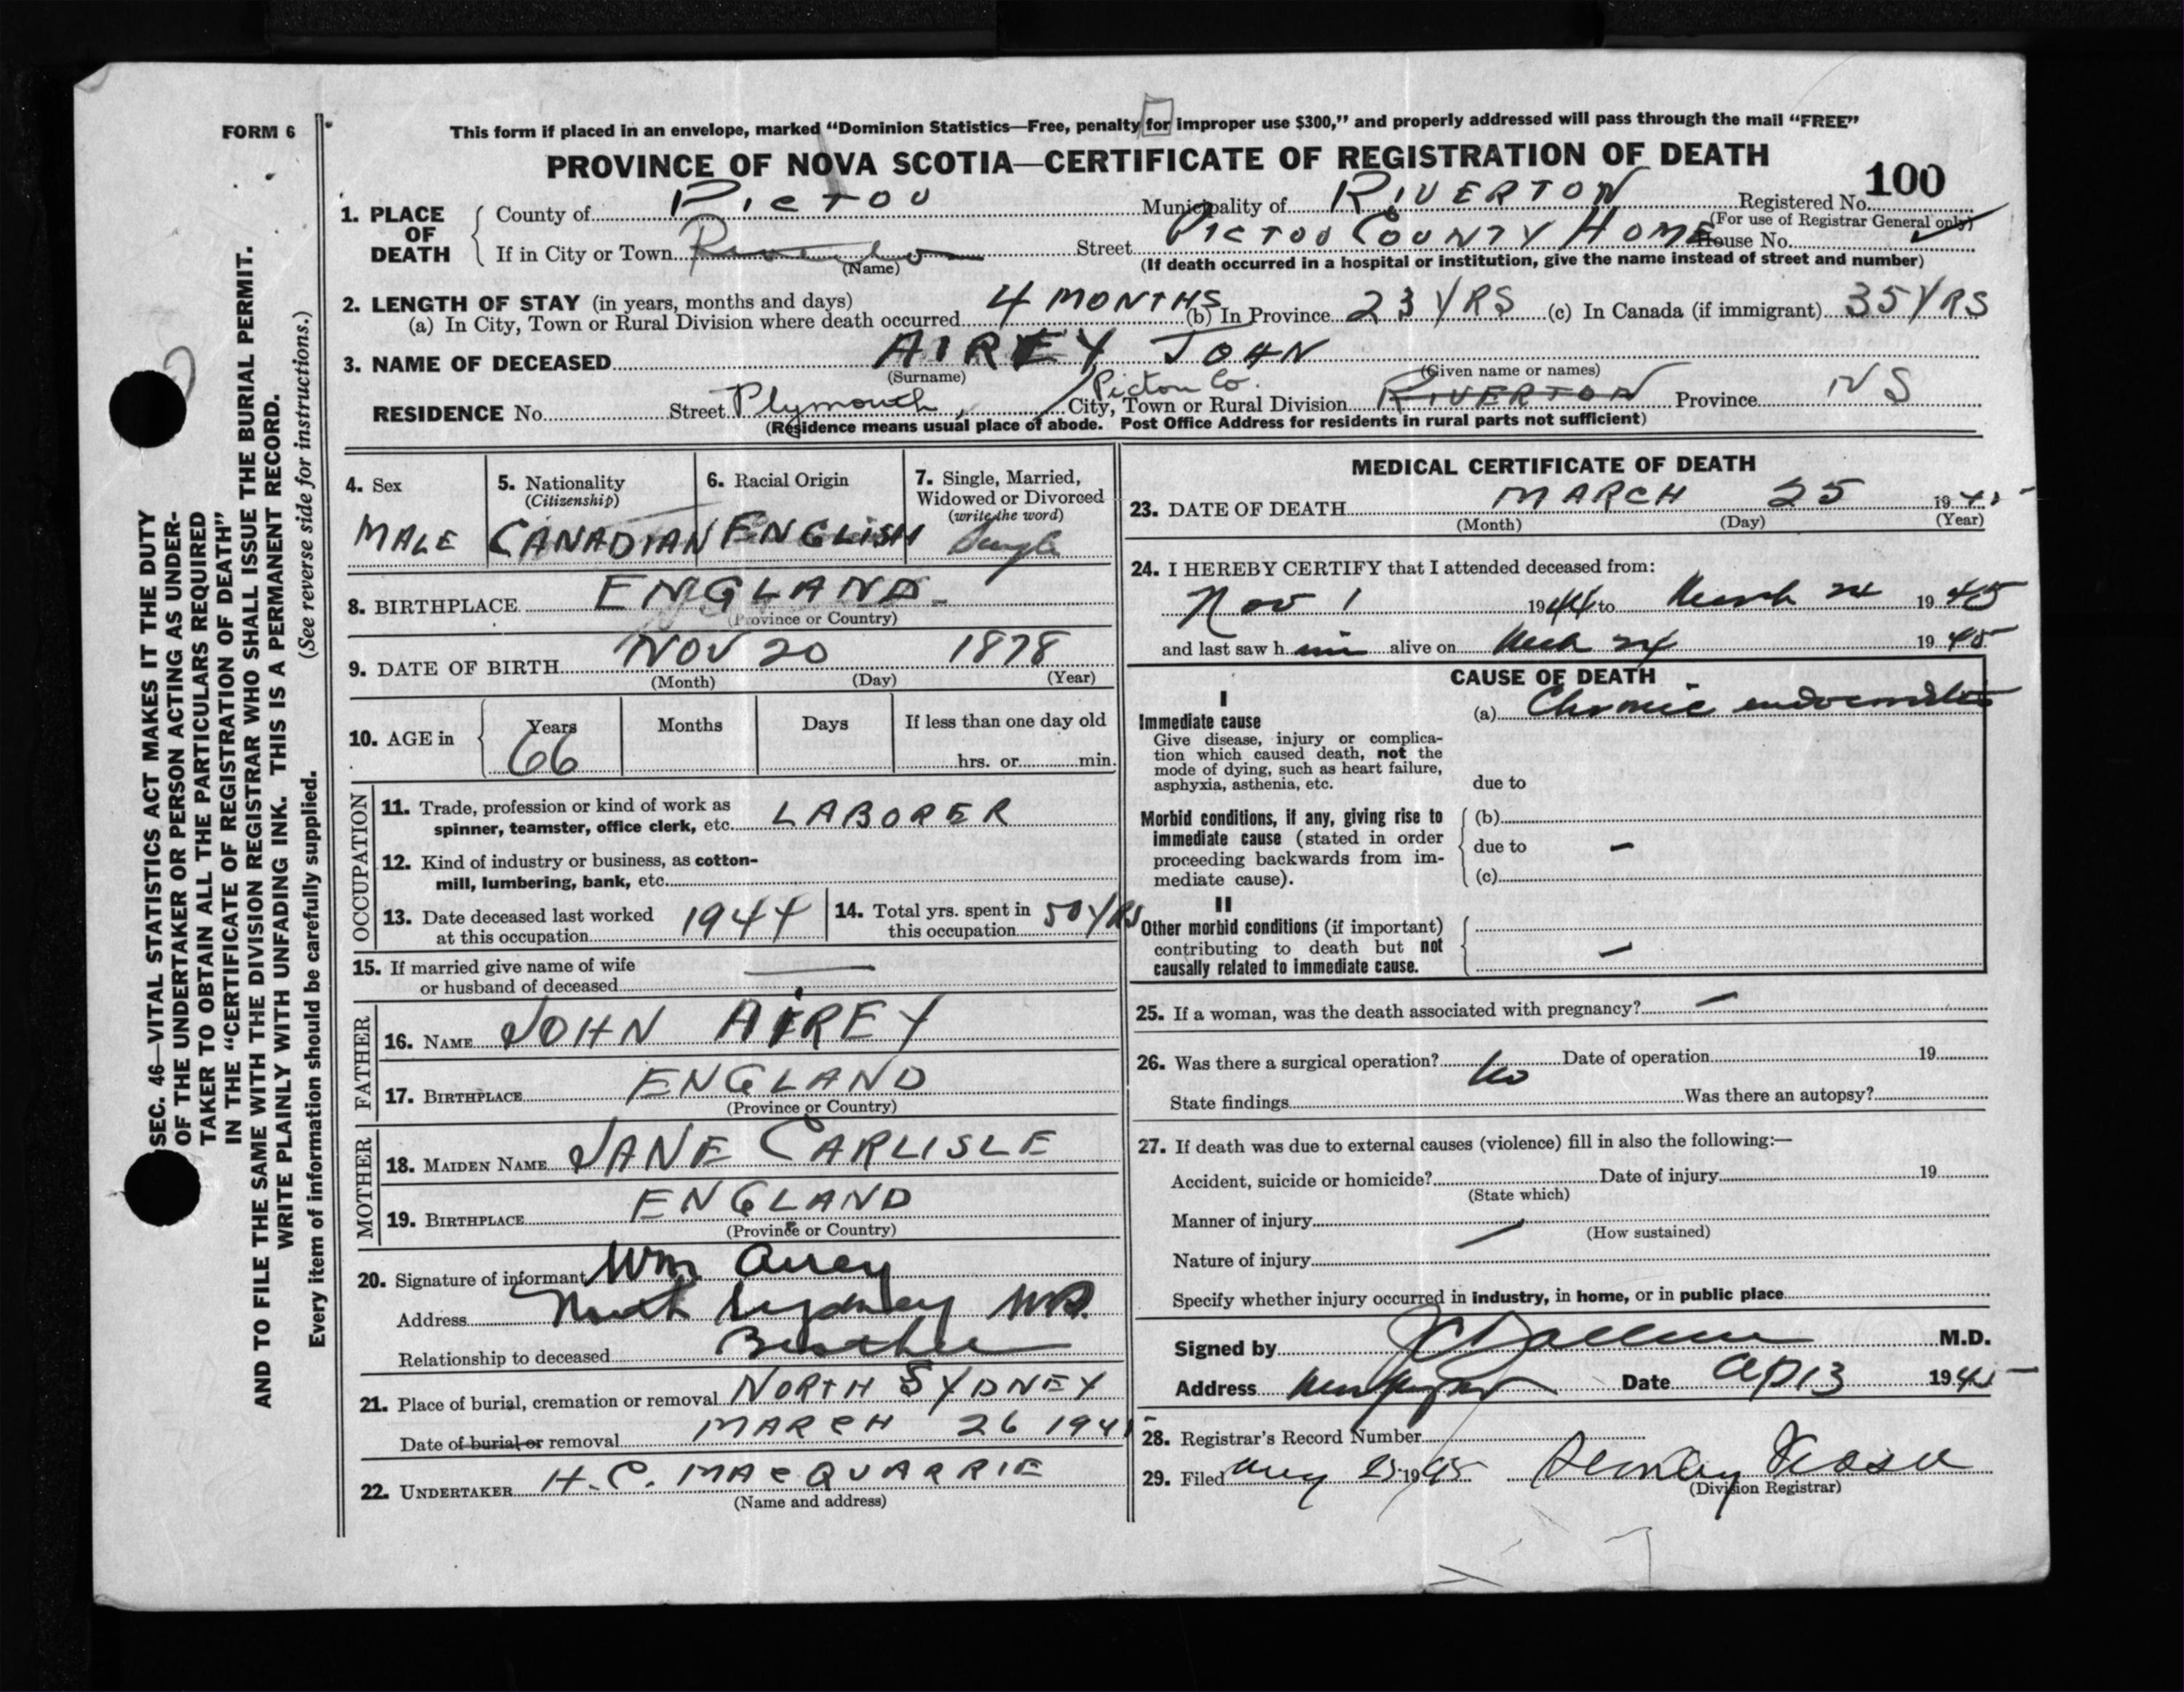 FORM 6
This form if placed in an envelope, marked “Dominion Statistics—Free, penalty for improper use $300,” and properly addressed will pass through the mail “FREE”
PROVINCE OF NOVA SCOTIA—CERTIFICATE OF REGISTRATION OF DEATH
100
1. PLACE OF DEATH
County of PICTOU Municipality of RIVERTON Registered No.
(For use of Registrar General only)
If in City or Town Street PICTOU COUNTY HOME House No.
(Name) (If death occurred in a hospital or institution, give the name instead of street and number)
2. LENGTH OF STAY (in years, months and days)
(a) In City, Town or Rural Division where death occurred 4 MONTHS (b) In Province 23 YRS (c) In Canada (if immigrant) 35 YRS
3. NAME OF DECEASED AIREY JOHN
(Surname) (Given name or names)
RESIDENCE No. Street Plymouth, Pictou Co. City, Town or Rural Division RIVERTON Province NS
(Residence means usual place of abode. Post Office Address for residents in rural parts not sufficient)
4. Sex
MALE
5. Nationality
(Citizenship)
CANADIAN
6. Racial Origin
ENGLISH
7. Single, Married,
Widowed or Divorced
(write the word)
Single
8. BIRTHPLACE ENGLAND
(Province or Country)
9. DATE OF BIRTH NOV 20 1878
(Month) (Day) (Year)
10. AGE in
Years Months Days If less than one day old
66 hrs. or min.
OCCUPATION
11. Trade, profession or kind of work as
spinner, teamster, office clerk, etc. LABORER
12. Kind of industry or business, as cotton-
mill, lumbering, bank, etc.
13. Date deceased last worked
at this occupation 1944
14. Total yrs. spent in
this occupation 50 YRS
15. If married give name of wife
or husband of deceased —
FATHER
16. NAME JOHN AIREY
17. BIRTHPLACE ENGLAND
(Province or Country)
MOTHER
18. MAIDEN NAME JANE CARLISLE
19. BIRTHPLACE ENGLAND
(Province or Country)
20. Signature of informant Wm Airey
Address North Sydney N.S.
Relationship to deceased Brother
21. Place of burial, cremation or removal NORTH SYDNEY
Date of burial or removal MARCH 26 1945
22. UNDERTAKER H. C. MACQUARRIE
(Name and address)
MEDICAL CERTIFICATE OF DEATH
23. DATE OF DEATH MARCH 25 1945
(Month) (Day) (Year)
24. I HEREBY CERTIFY that I attended deceased from:
Nov 1 1944 to March 24 1945
and last saw h im alive on Mch 24 1945
CAUSE OF DEATH
I
Immediate cause
Give disease, injury or complica-
tion which caused death, not the
mode of dying, such as heart failure,
asphyxia, asthenia, etc.
(a) Chronic endocarditis
due to
Morbid conditions, if any, giving rise to
immediate cause (stated in order
proceeding backwards from im-
mediate cause).
(b)
due to —
(c)
II
Other morbid conditions (if important)
contributing to death but not
causally related to immediate cause.
—
25. If a woman, was the death associated with pregnancy? —
26. Was there a surgical operation? No Date of operation 19
State findings Was there an autopsy?
27. If death was due to external causes (violence) fill in also the following:—
Accident, suicide or homicide? Date of injury 19
(State which)
Manner of injury
(How sustained)
Nature of injury
Specify whether injury occurred in industry, in home, or in public place
Signed by M.D.
Address Date Ap 13 1945
28. Registrar's Record Number
29. Filed 1945
(Division Registrar)
SEC. 46—VITAL STATISTICS ACT MAKES IT THE DUTY
OF THE UNDERTAKER OR PERSON ACTING AS UNDER-
TAKER TO OBTAIN ALL THE PARTICULARS REQUIRED
IN THE “CERTIFICATE OF REGISTRATION OF DEATH”
AND TO FILE THE SAME WITH THE DIVISION REGISTRAR WHO SHALL ISSUE THE BURIAL PERMIT.
WRITE PLAINLY WITH UNFADING INK. THIS IS A PERMANENT RECORD.
Every item of information should be carefully supplied. (See reverse side for instructions.)